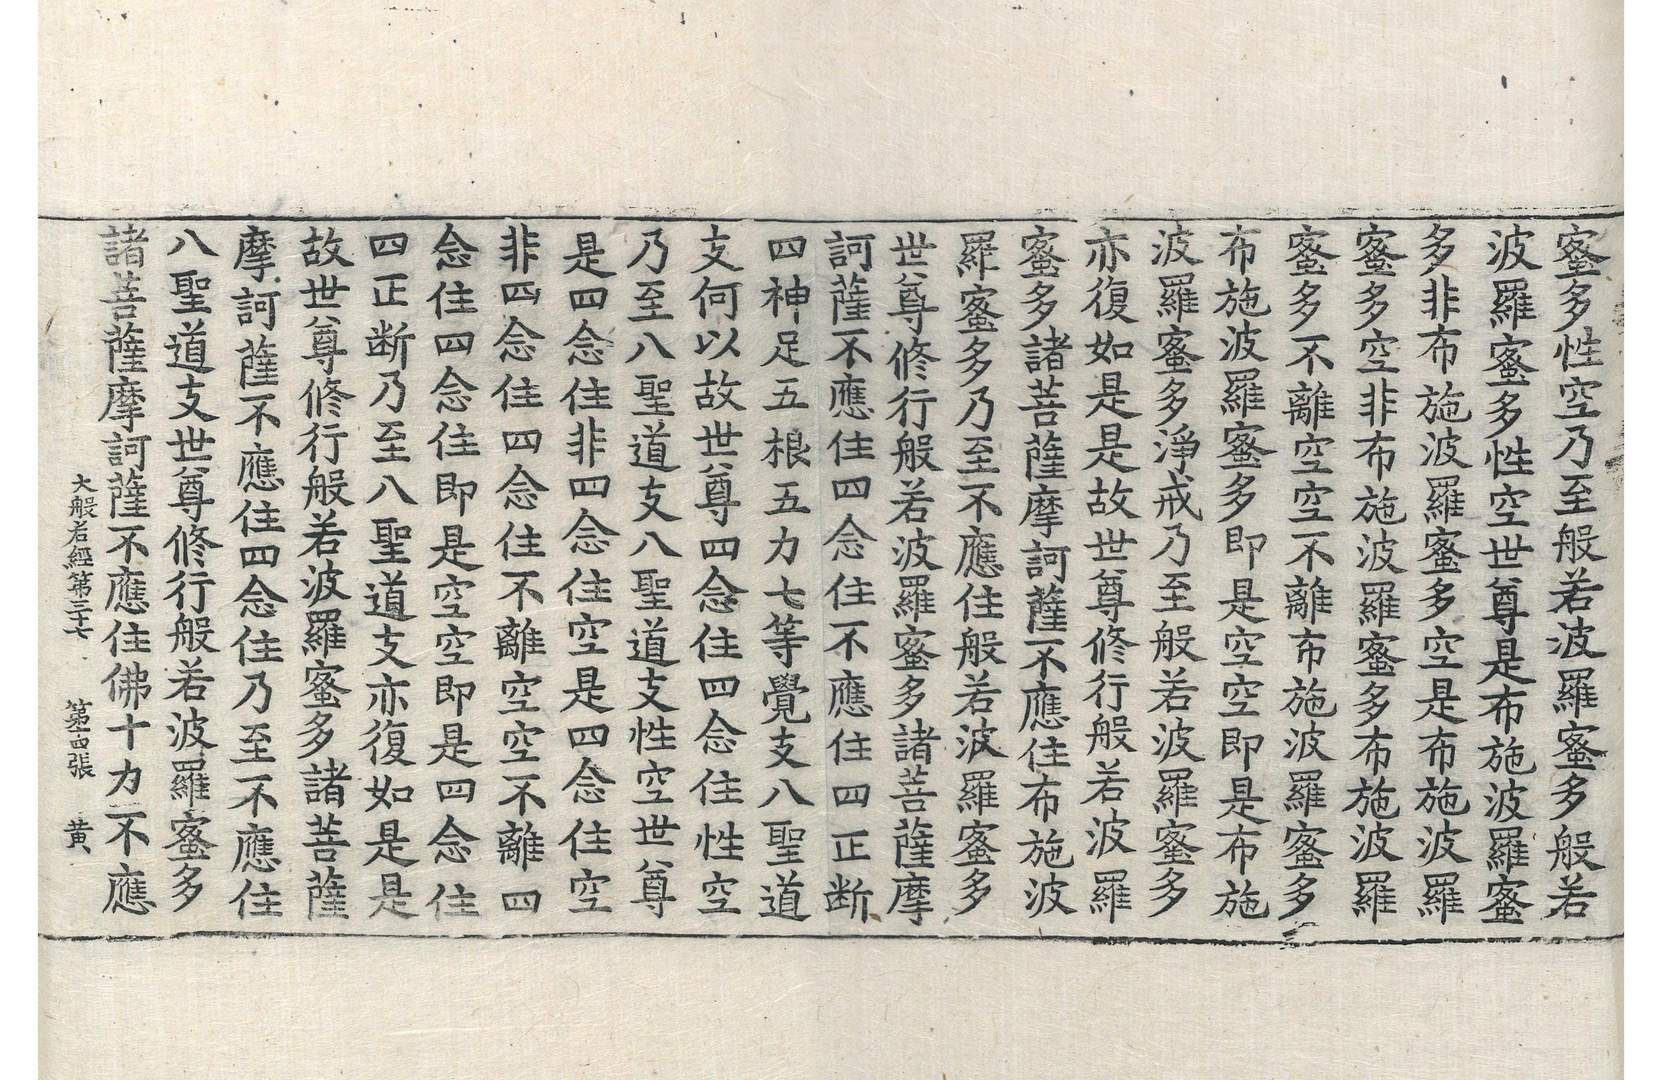 蜜多性空乃至般若波羅蜜多般若
波羅蜜多性空世尊是布施波羅蜜
多非布施波羅蜜多空是布施波羅
蜜多空非布施波羅蜜多布施波羅
蜜多不離空空不離布施波羅蜜多
布施波羅蜜多即是空空即是布施
波羅蜜多淨戒乃至般若波羅蜜多
亦復如是是故世尊修行般若波羅
蜜多諸菩薩摩訶薩不應住布施波
羅蜜多乃至不應住般若波羅蜜多
世尊修行般若波羅蜜多諸菩薩摩
訶薩不應住四念住不應住四正断
四神足五根五力七等覺支八聖道
支何以故世尊四念住四念住性空
乃至八聖道支八聖道支性空世尊
是四念住非四念住空是四念住空
非四念住四念住不離空空不離四
念住四念住即是空空即是四念住
四正断乃至八聖道支亦復如是是
故世尊修行般若波羅蜜多諸菩薩
摩訶薩不應住四念住乃至不應住
八聖道支世尊修行般若波羅蜜多
諸菩薩摩訶薩不應住佛十力不應
大般若經第三十七 第十四張 黄